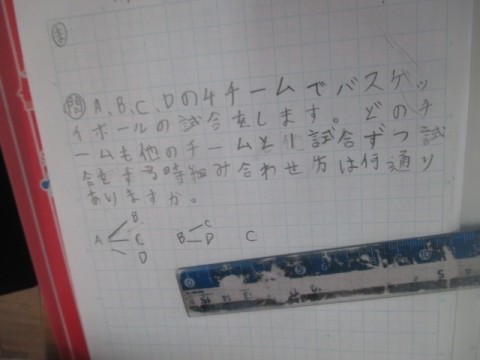 問 A、B、C、Dの4チームでバスケッ
トボールの試合をします。どのチ
ームも他のチームと1試合ずつ試
合をする時組み合わせ方は何通り
ありますか。
A B C D
B C D
C